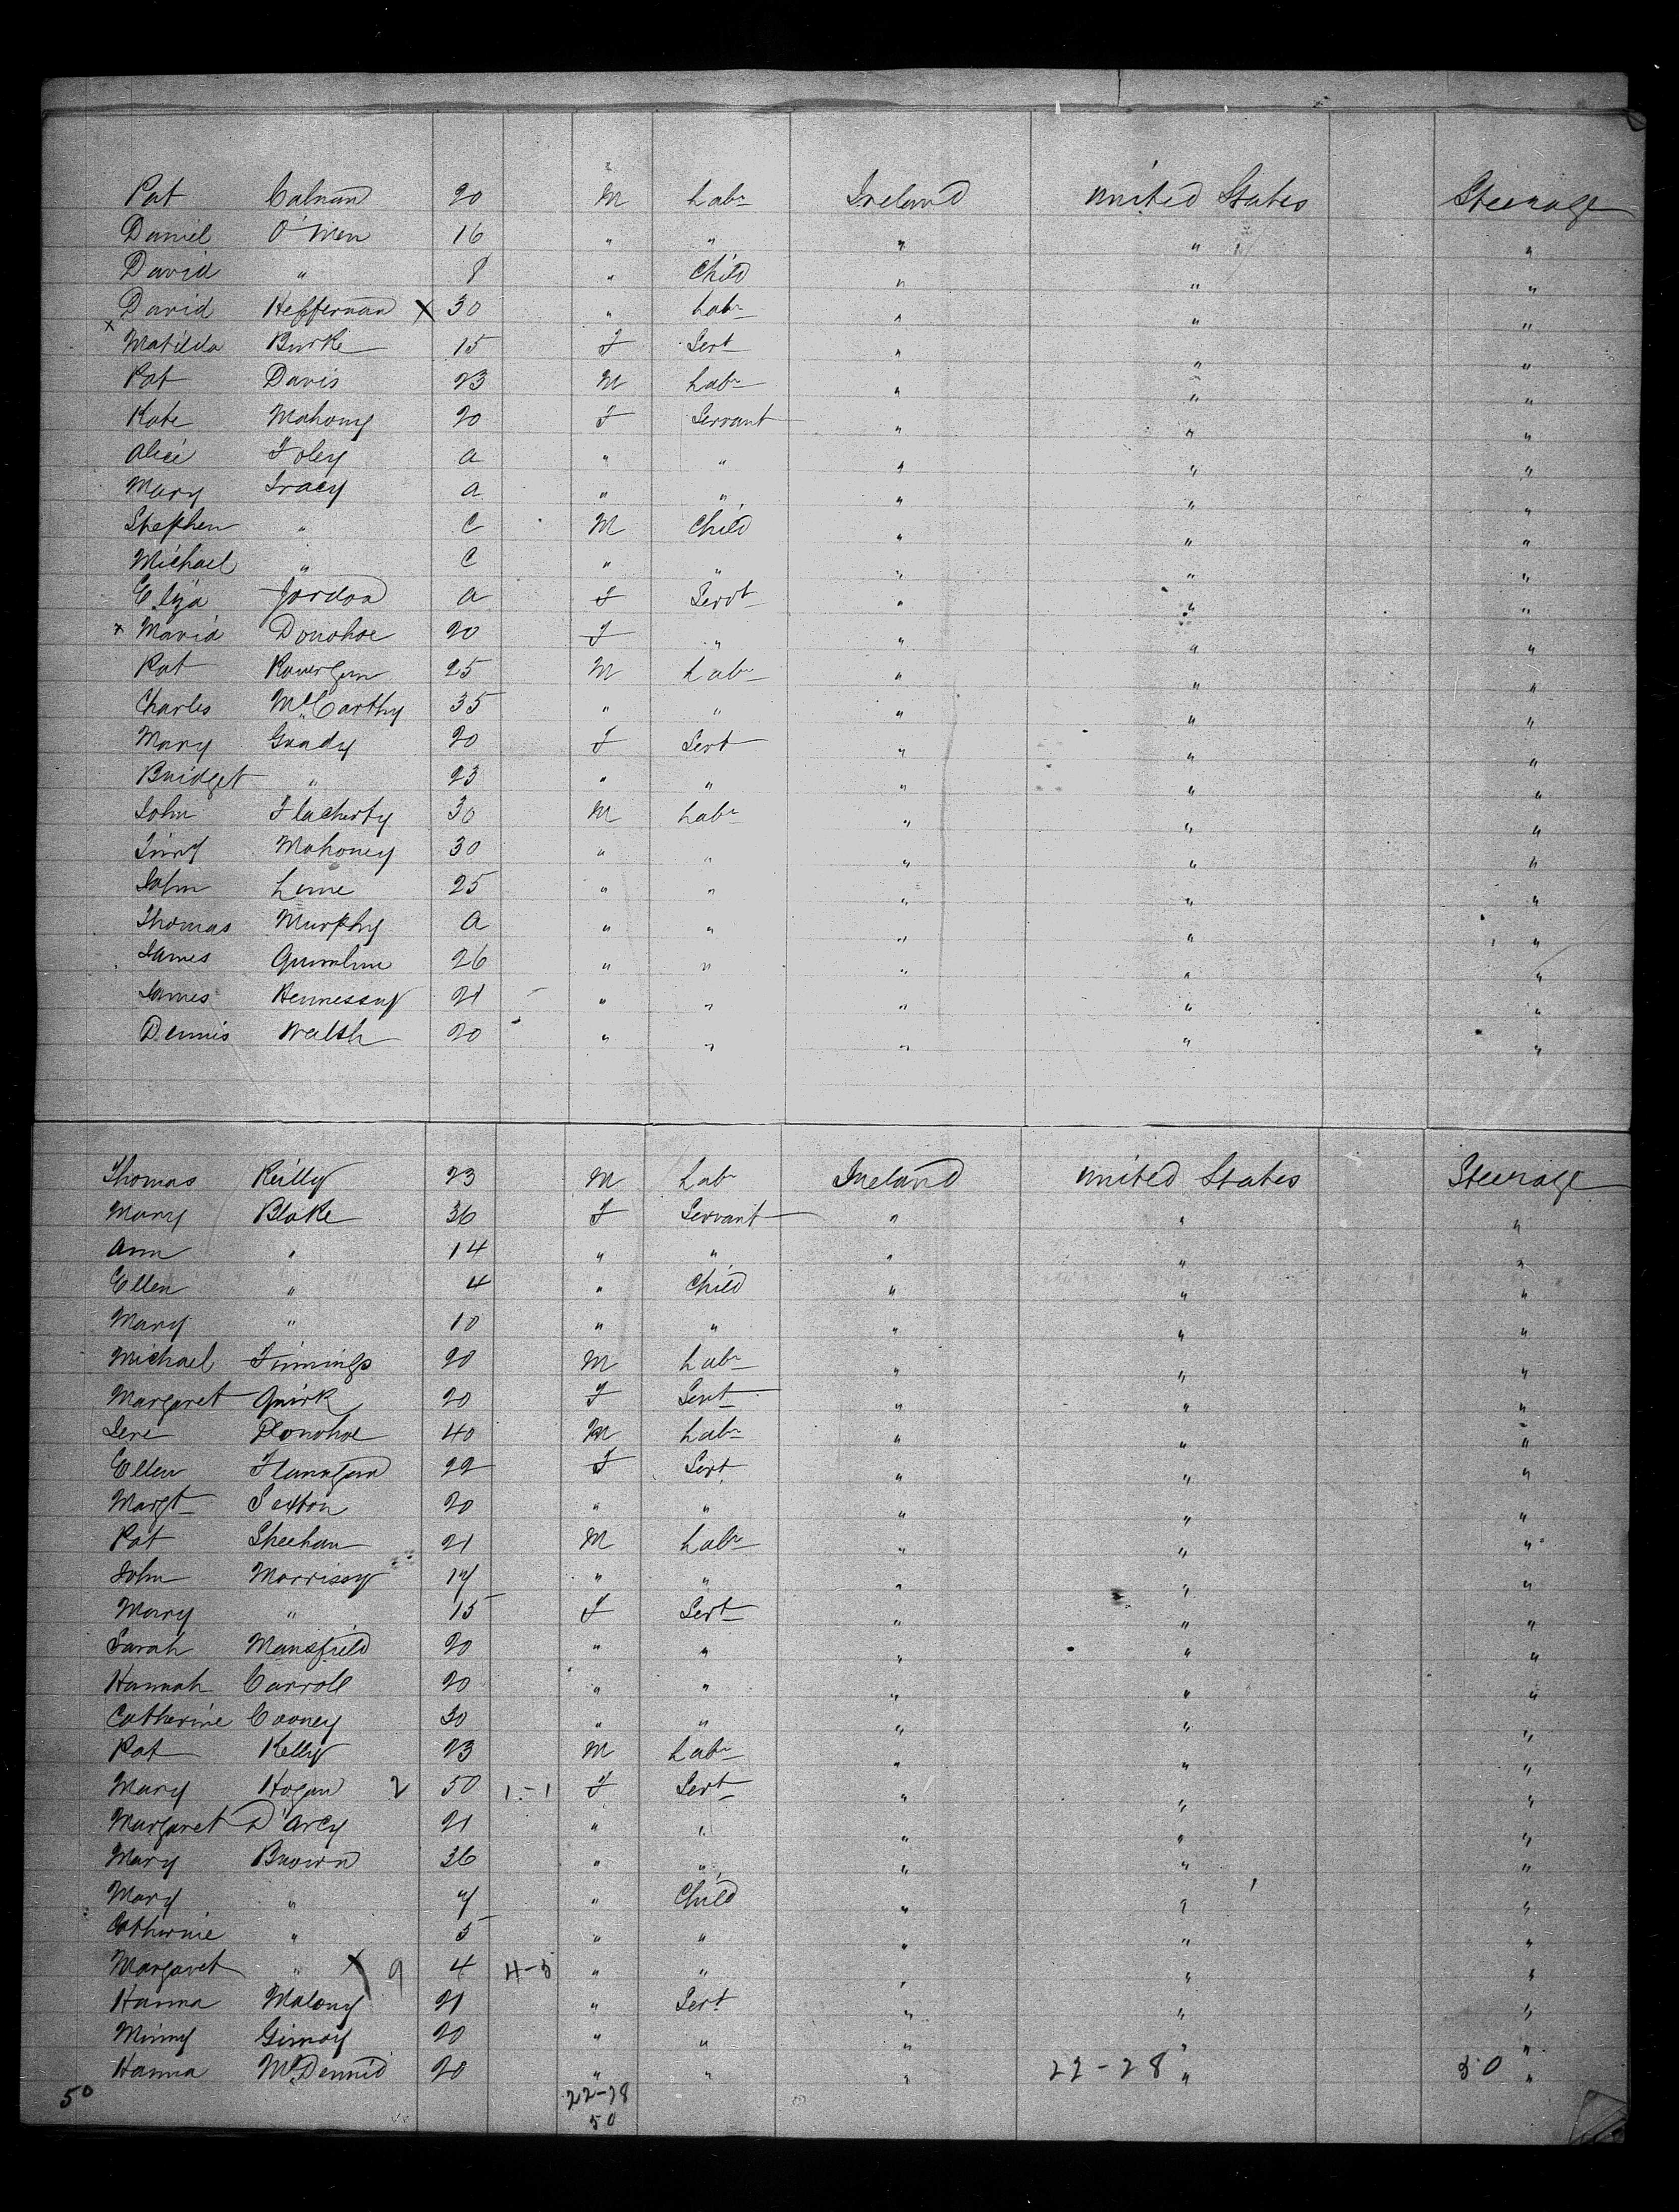 Pat Calnan 20 M Labr Ireland United States Steerage
Daniel O'Men 16 " " " " "
David " 8 " Child " " "
David Heffernan X 30 " Labr " " "
x Matilda Burke 15 F Sert " " "
Pat Davis 23 M Labr " " "
Kate Mahony 20 F Servant " " "
Alice Foley a " " " " "
Mary Tracy a " " " " "
Stephen " C M Child " " "
Michael " C " " " " "
Eliza Jordon a F Servt " " "
x Maria Donohoe 20 F " " " "
Pat 25 M Labr " " "
Charles McCarthy 35 " " " " "
Mary Grady 20 F Sert " " "
Bridget " 23 " " " " "
John Flacherty 30 M Labr " " "
Mahoney 30 " " " " "
John 25 " " " " "
Thomas Murphy a " " " " "
James Quinlan 26 " " " " "
James Hennessuy 21 " " " " "
Dennis Walsh 20 " " " " "
Thomas Reilly 23 M Labr Ireland United States Steerage
Mary Blake 36 F Servant " " "
Ann " 14 " " " " "
Ellen " 4 " Child " " "
Mary " 10 " " " " "
Michael Finnings 20 M Labr " " "
Margaret Quirk 20 F Sert " " "
Jere Donohoe 40 M Labr " " "
Ellen Flanagan 22 F Sert " " "
Margt Sexton 20 " " " " "
Pat Sheehan 21 M Labr " " "
John Morrisey 17 " " " " "
Mary " 15 F Sert " " "
Sarah Mansfield 20 " " " " "
Hannah Carroll 20 " " " " "
Catherine Cooney 30 " " " " "
Pat Kelly 23 M Labr " " "
Mary Hogan 2 50 1-1 F Sert " " "
Margaret D'Arcy 21 " " " " "
Mary Brown 36 " " " " "
Mary " 7 " Child " " "
Catherine " 5 " " " " "
Margaret " X 9 4 4-5 " " " " "
Hanna Malony 21 " Sert " " "
Minny 20 " " " " "
Hanna McDermid 20 " " " 22-28 " 50 "
50 22-28
50